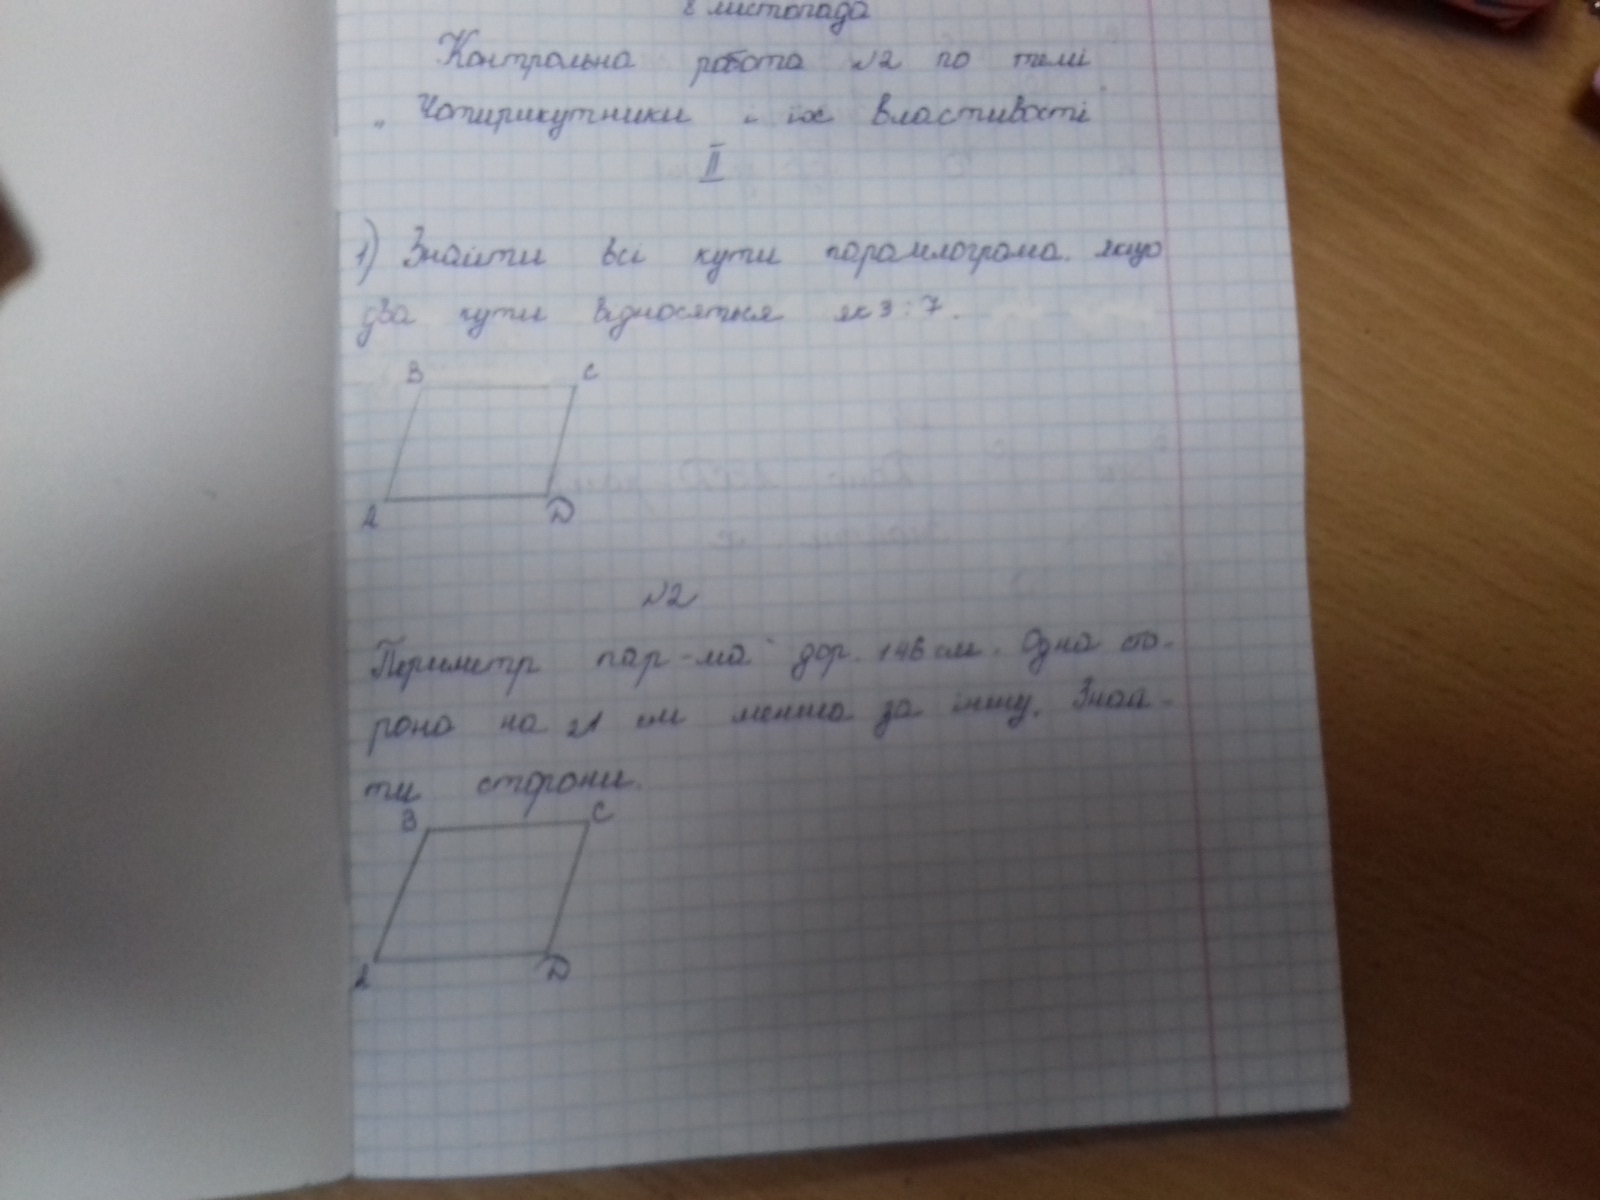 8 листопада
Контрольна робота №2 по темі
„ Чотирикутники і їх властивості
II
1) Знайти всі кути паралелограма. якщо
два кути відносяться як 3 : 7.
B C
A D
№2
Периметр пар-ма дор. 146 см. Одна сто-
рона на 21 см менша за іншу. Знай-
ти сторони.
B C
A D